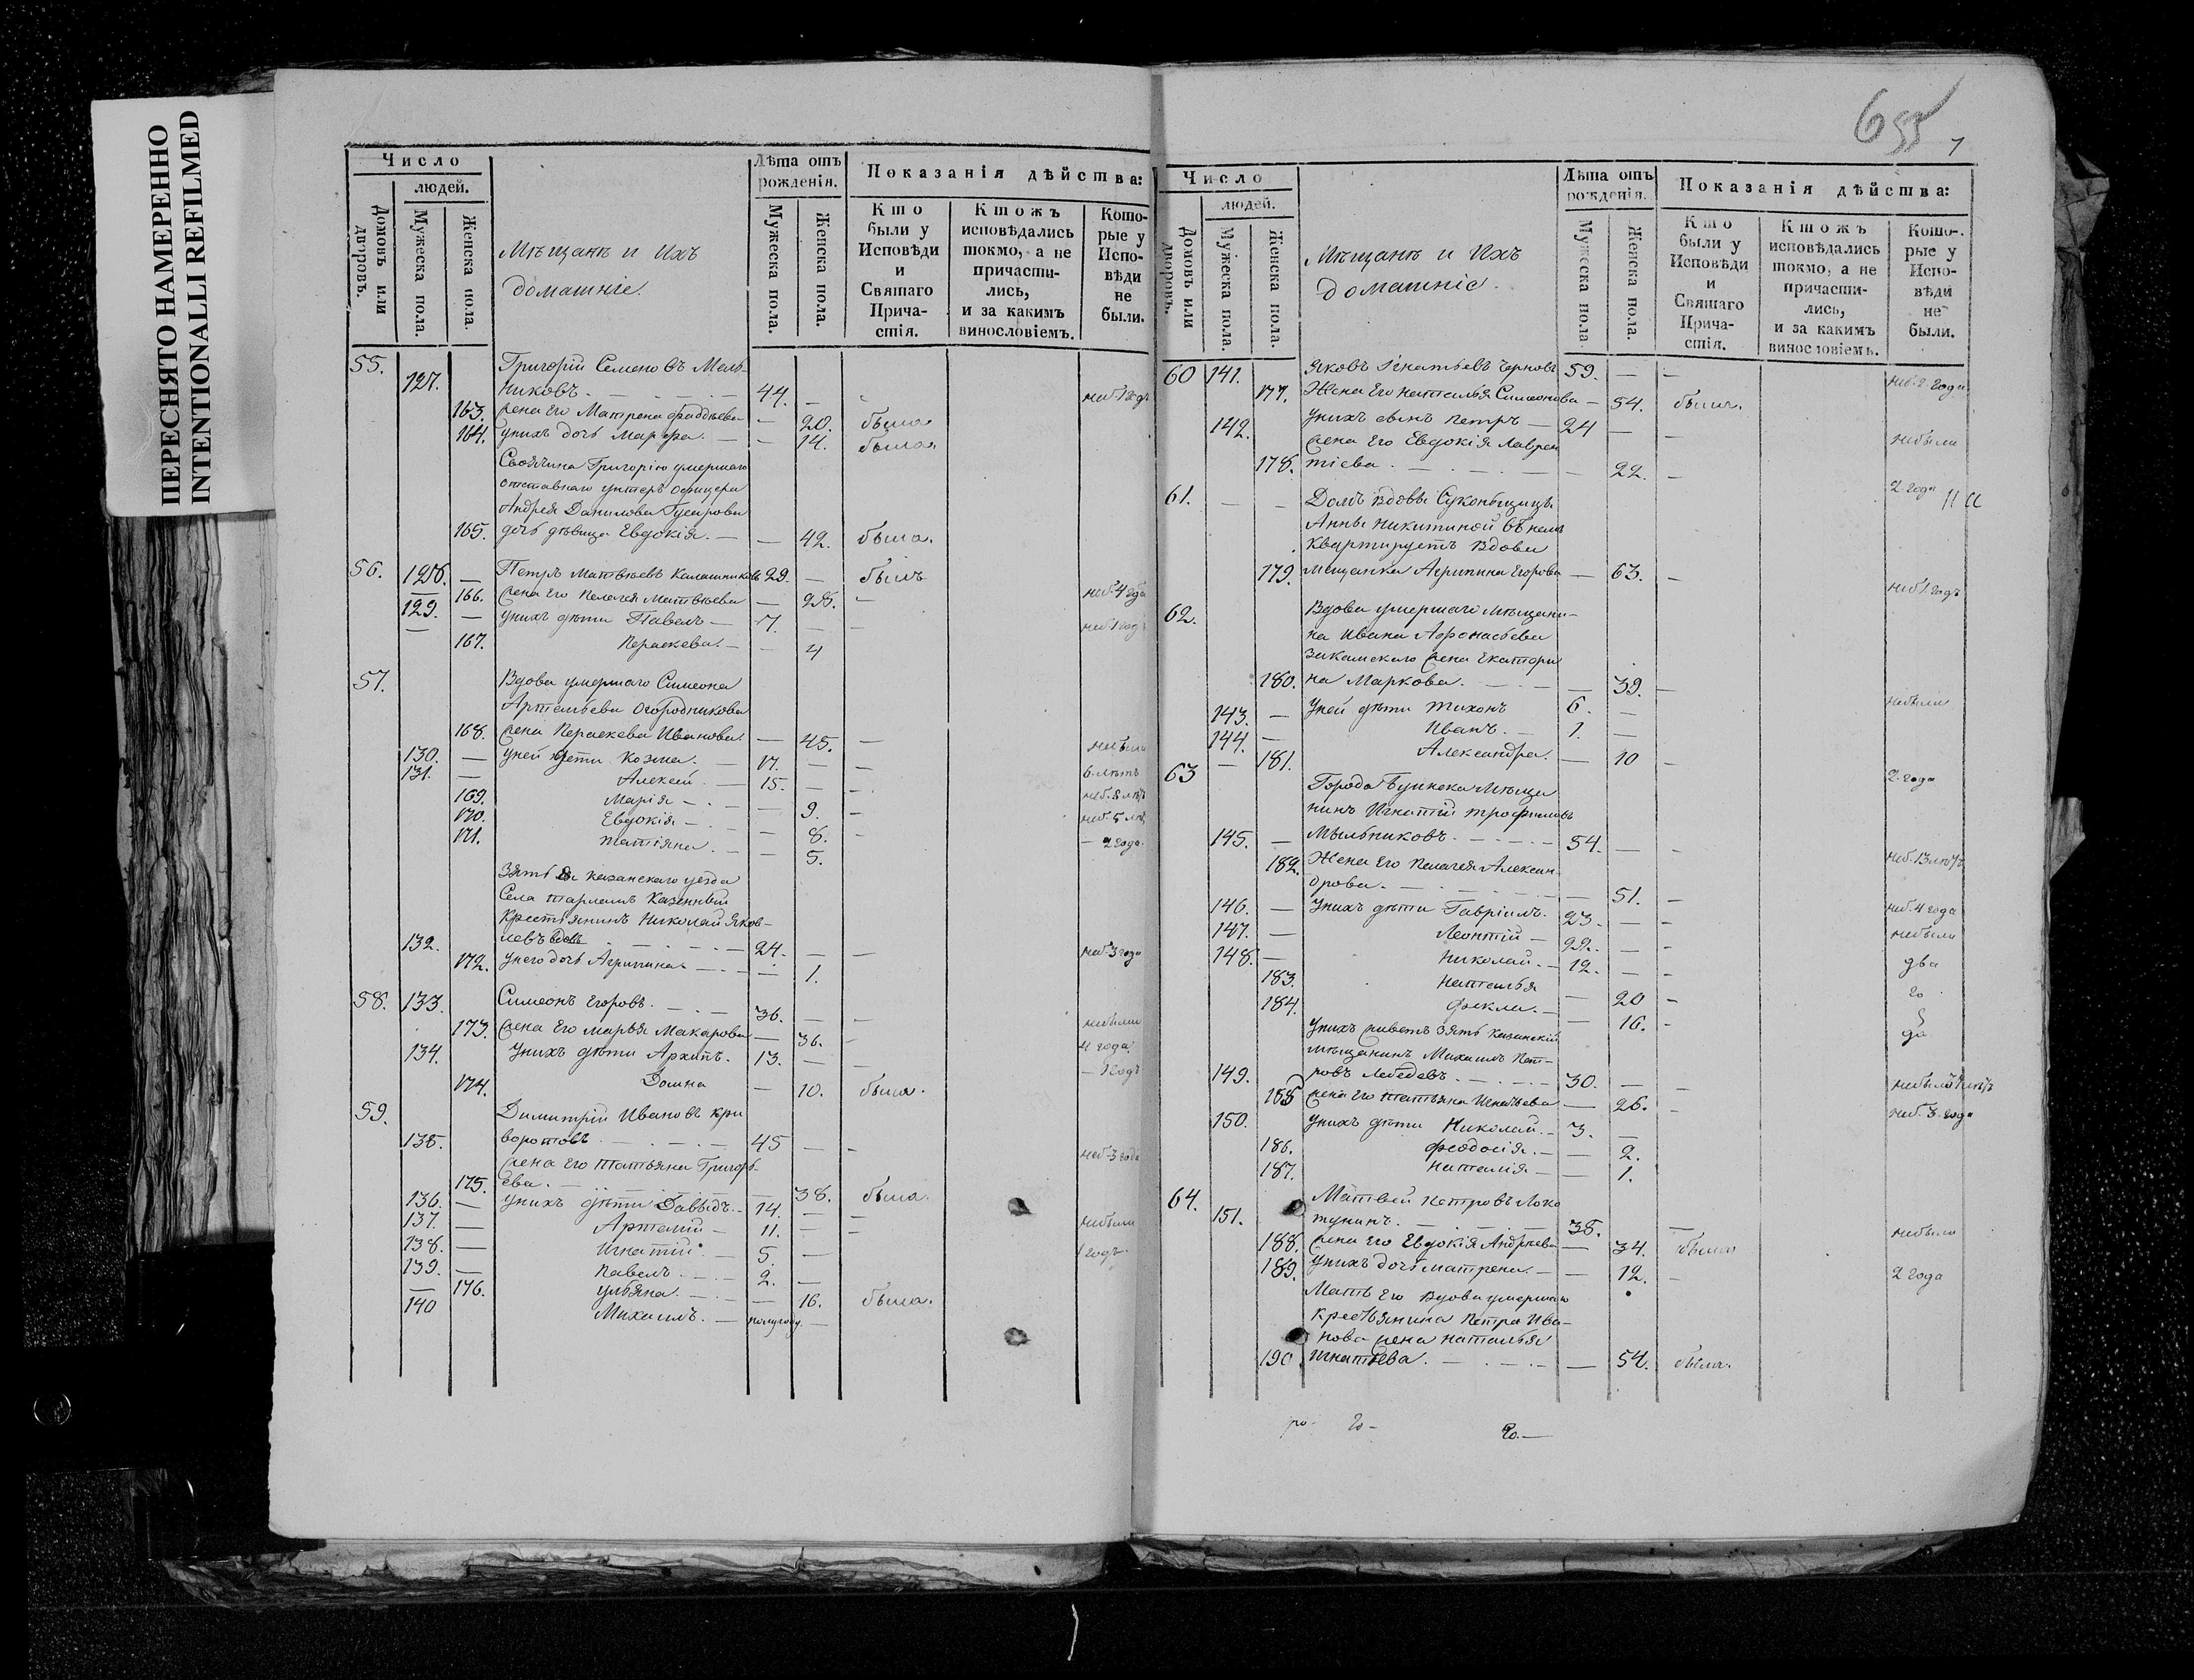 ПЕРЕСНЯТО НАМЕРЕННО
INTENTIONALLI REFILMED
Число
людей.
Домовъ или дворовъ.
Мужеска пола.
Женска пола.
Мѣщанъ и Ихъ
домашніе.
Лѣта отъ рожденія.
Мужеска пола.
Женска пола.
Показанія дѣйства:
Кто были у Исповѣди и Святаго Причастія.
Ктожъ исповѣдались токмо, а не причастились, и за какимъ винословіемъ.
Которые у Исповѣди не были.
55. Григорій Семеновъ Мель-
127. никовъ. 44. — неб. 1 годъ
163. жена Его Матрена Фаддѣева — 20. была
164. унихъ дочь Марфа. — 14. была
Своячина Григорію умершаго
отставнаго унтеръ офицера
Андрея Данилова Гусарова
165. дочь дѣвица Евдокія. — 42. была.
56. 128. — Петръ Матвѣевъ Калашниковъ 29. — былъ
166. жена Его Пелагея Матвѣева — 28. — неб. 4 года
129. — унихъ дѣти Павелъ — 7. — неб. 1 годъ
167. Параскева. — 4
57. Вдова умершаго Симеона
Артемьева Огородникова
168. жена Параскева Иванова. — 45. — небыли
130. — уней дѣти Козма. — 17. — 6 лѣтъ
131. — Алексей — 15. — неб. 8 лѣтъ
169. Марія — 9. — неб. 5 лѣ
170. Евдокія — 8. — 2 года.
171. Татіяна. — 5.
Зять Ея Казанскаго уезда
Села Тарлашъ Казенный
Крестьянинъ Николай Яков-
132. левъ вдовъ — 24. — неб. 3 года
172. унего дочь Агрипина — 1.
58. 133. Симеонъ Егоровъ. — 36. —
173. жена Его Марья Макарова — 36. — небыли
134. унихъ дѣти Архипъ. 13. — 4 года.
174. Домна — 10. была. — 1 годъ
59. Димитрій Ивановъ Кри
135. воротовъ — 45 — неб. 3 года
жена Его Татьяна Григорь-
175. ева. — 38. была.
136. — унихъ дѣти Давыдъ. — 14. —
137. — Артемій — 11. — небыли
138. — Игнатій. — 5. — 1 годъ.
139. — Павелъ. — 2. —
176. Ульяна. — 16. была.
140 Михаилъ. — полугоду —
655
7
Число
людей.
Домовъ или дворовъ.
Мужеска пола.
Женска пола.
Мѣщанъ и Ихъ
домашніе.
Лѣта отъ рожденія.
Мужеска пола.
Женска пола.
Показанія дѣйства:
Кто были у Исповѣди и Святаго Причастія.
Ктожъ исповѣдались токмо, а не причастились, и за какимъ винословіемъ.
Которые у Исповѣди не были.
60 141. Яковъ Игнатьевъ Черновъ 59. — неб. 2 года
177. Жена Его Наталья Симеонова — 54. была.
142. унихъ сынъ Петръ — 24 — небыли
жена Его Евдокія Лаврен
178. тіева. — 22. — 2 года
61. — Домъ вдовы Суконьщицы
Анны Никитиной въ немъ
Квартируетъ вдова
179. мещанка Агрипина Егорова — 63. — неб. 1 годъ
62. Вдова умершаго мѣщани-
на Ивана Афонасьева
Закамскаго жена Екатери
180. на Маркова. — 39. —
143. — Уней дѣти Тихонъ 6. — небыли
144. — Иванъ. — 1. —
181. Александра. — 10 — 2 года
63 Города Буинска Мѣща
нинъ Игнатій Трофимовъ
145. — Мыльниковъ. — 54. — неб. 13 лѣтъ
182. Жена Его Пелагея Алексан-
дрова. — 51. — неб. 4 года
146. — Унихъ дѣти Гавріилъ. 23. — небыли
147. — Леонтій — 22. — два
148. — Николай. — 12. — го
183. Наталья — 20 —
184. Фекла. — 16. — да
Унихъ живетъ зять Казанскій
мѣщанинъ Михаилъ Пет-
149. ровъ Лебедевъ. — 30. —
185 жена Его Татьяна Игнатьева — 26. — неб. 3 года
150. Унихъ дѣти Николай. — 3. —
186. Феодосія. — 2.
187. Наталія — 1.
64. Матвей Петровъ Локо
151. тунинъ. — 38. — небылъ
188. жена Его Евдокія Андреева — 34. была
189. Унихъ дочь Матрена. — 12. — 2 года
Мать Его вдова умершаго
Крестьянина Петра Ива-
нова жена Наталья
190. Игнатьева. — 54. была.